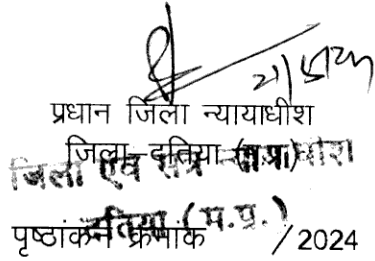 प्रधान जिला न्यायाधीश
जिला दतिया (म.प्र.)
जिला एवं सत्र न्यायाधीश
दतिया (म.प्र.)
पृष्ठांकन क्रमांक /2024